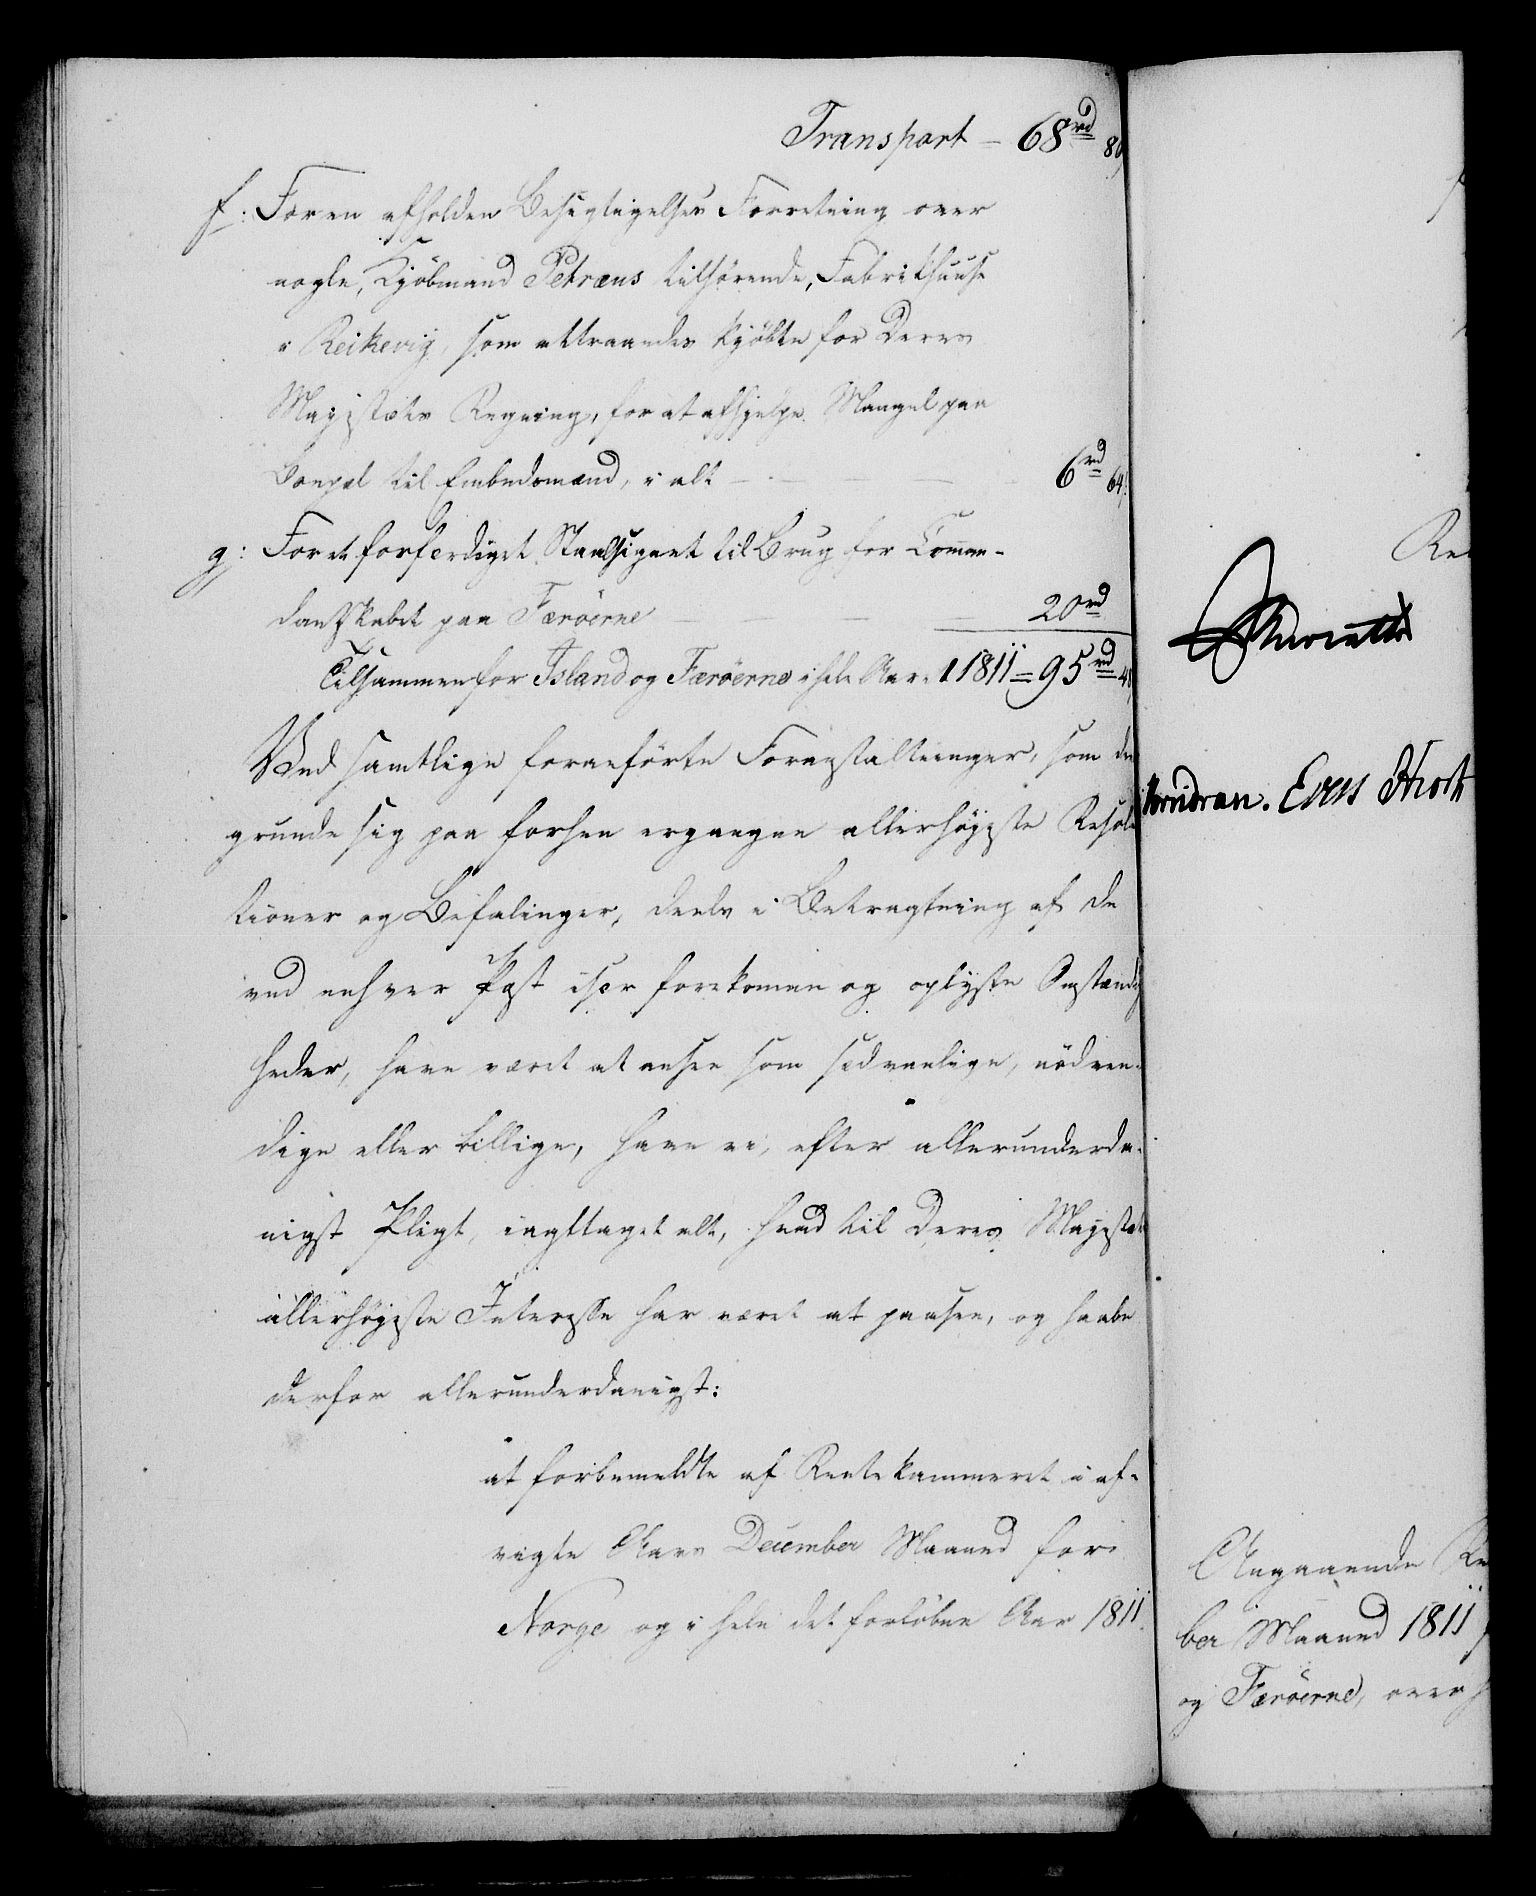 Transport - 68rd 80
f: For en afholden Besigtigelses Forretning over
nogle, Kjöbmand Petræus tilhörende, Fabrikhuuse
i Reikevig, som attraaedes kjöbte for Deres
Majestæts Regning, for at afhjelpe Mangel paa
Bopæl til Embedsmænd, i alt - - - - 6rd 64
g: For et forferdiget Staalsignet til Brug for Comman-
dantskabet paa Færöerne - - - - 20rd
Tilsammen for Island og Færöerne i hele Aaret 1811 = 95rd 4
Ved samtlige foranförte Foranstaltninger, som de
grunde sig paa forhen ergangne allerhöyeste Resolu
tioner og Befalinger, deels i Betragtning af de
ved enhver Post især forekomne og oplyste Omstændig
heder, have været at ansee som sædvanlige, nödven-
dige eller billige, have vi, efter allerunderda-
nigst Pligt, iagttaget alt, hvad til Deres Majestæts
allerhöyeste Interesse har været at paasee, og haabe
derfor allerunderdanigst:
at forbemeldte af Rentekammeret i af-
vigte Aars December Maaned for
Norge og i hele det forløbne Aar 1811
Re
Angaaende Re
ber Maaned 1811
og Færöerne, over